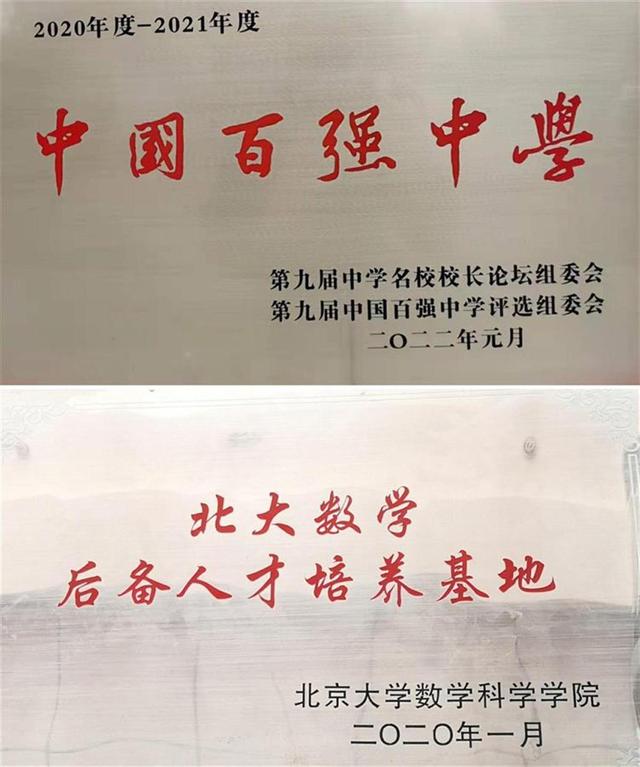 2020年度-2021年度
中國百强中學
第九届中学名校校长论坛组委会
第九届中国百强中学评选组委会
二〇二二年元月
北大数学
后备人才培养基地
北京大学数学科学学院
二〇二〇年一月